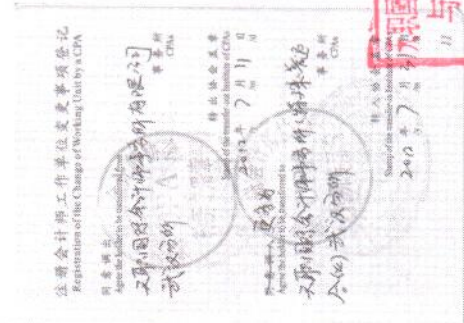 注册会计师工作单位变更事项登记
Registration of the Change of Working Unit by a CPA
同意调出
Agree the holder to be transferred from
天职国际会计师事务所有限公司
武汉分所
事务所
CPAs
转出协会盖章
Stamp of the transfer-out Institute of CPAs
2012 年 7 月 31 日
/y /m /d
同意调入
Agree the holder to be transferred to
天职国际会计师事务所(特殊普通
合伙) 武汉分所
事务所
CPAs
转入协会盖章
Stamp of the transfer-in Institute of CPAs
2012 年 7 月 31 日
11